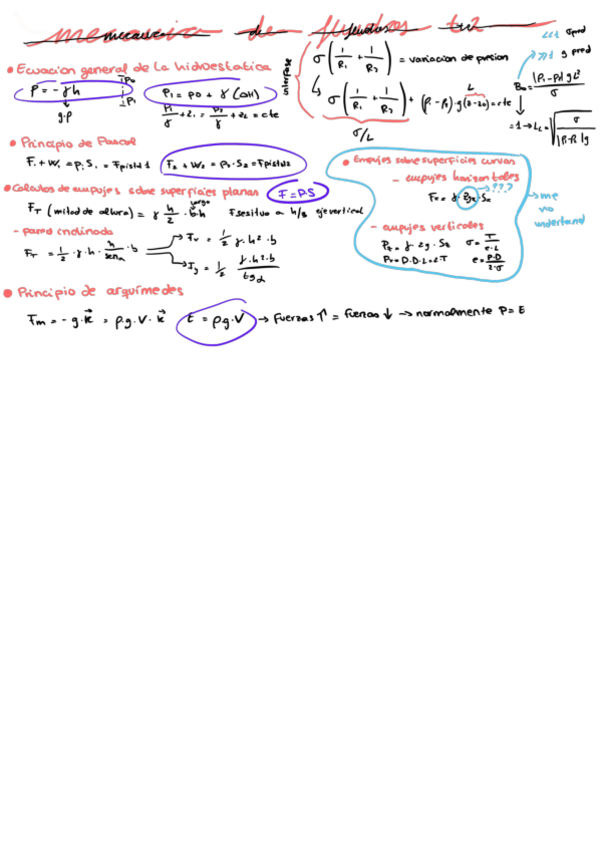 mecanica de fluidos tu2
• Ecuacion general de la hidroestatica
P = - γ h
g·ρ
P0
P1
P1 = P0 + γ (ΔH)
P1/γ + z1 = P2/γ + z2 = cte
interfase
σ (1/R1 + 1/R2) = variacion de presion
σ (1/R1 + 1/R2) + (P1 - P2)·g(z-z0) = cte
L
σ/L
<<1 σ pred
>>1 g pred
Bo = |P1-P2| g L²/σ
=1 → Lc = √(σ/|P1-P2| g)
• Principio de Pascal
F1 + W1 = P1 S1 = Fpisto1
F2 + W2 = P2·S2 = Fpisto2
• Calculos de empujes sobre superficies planas F = P·S
FT (mitad de altura) = γ h/2 · b·h
largo
F se situa a h/3 eje vertical
- pared inclinada
FT = 1/2 · γ · h · h/senα · b
Fv = 1/2 γ · h² · b
Fy = 1/2 γ·h²·b/tgα
• Empujes sobre superficies curvas
- empujes horizontales
Fx = γ · zgx · Sx
→ ???
→ me no understand
- empujes verticales
Pz = γ · zg · Sz
σ = T/e·L
P·D·L = 2T
e = P·D/2·σ
• Principio de arquimedes
Fm = - g·k = ρg·V·k
E = ρg·V → Fuerzas ↑ = fuerzas ↓ → normalmente P = E